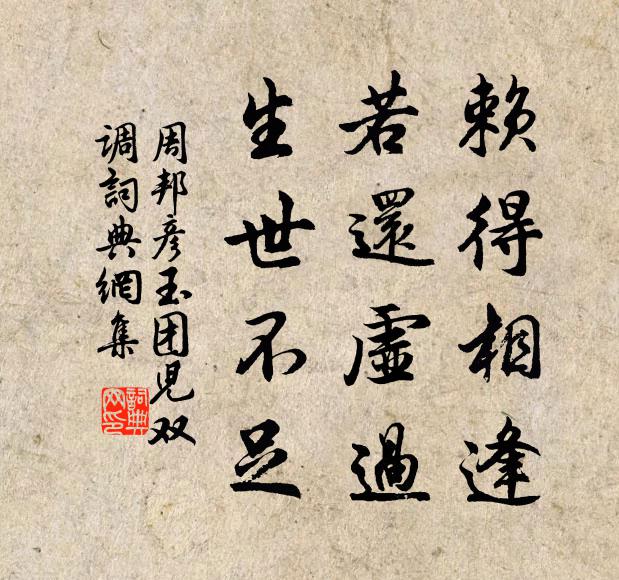 賴得相逢
若還虛過
生世不足
周邦彥玉团児双
调詞典網集
詞典
网印